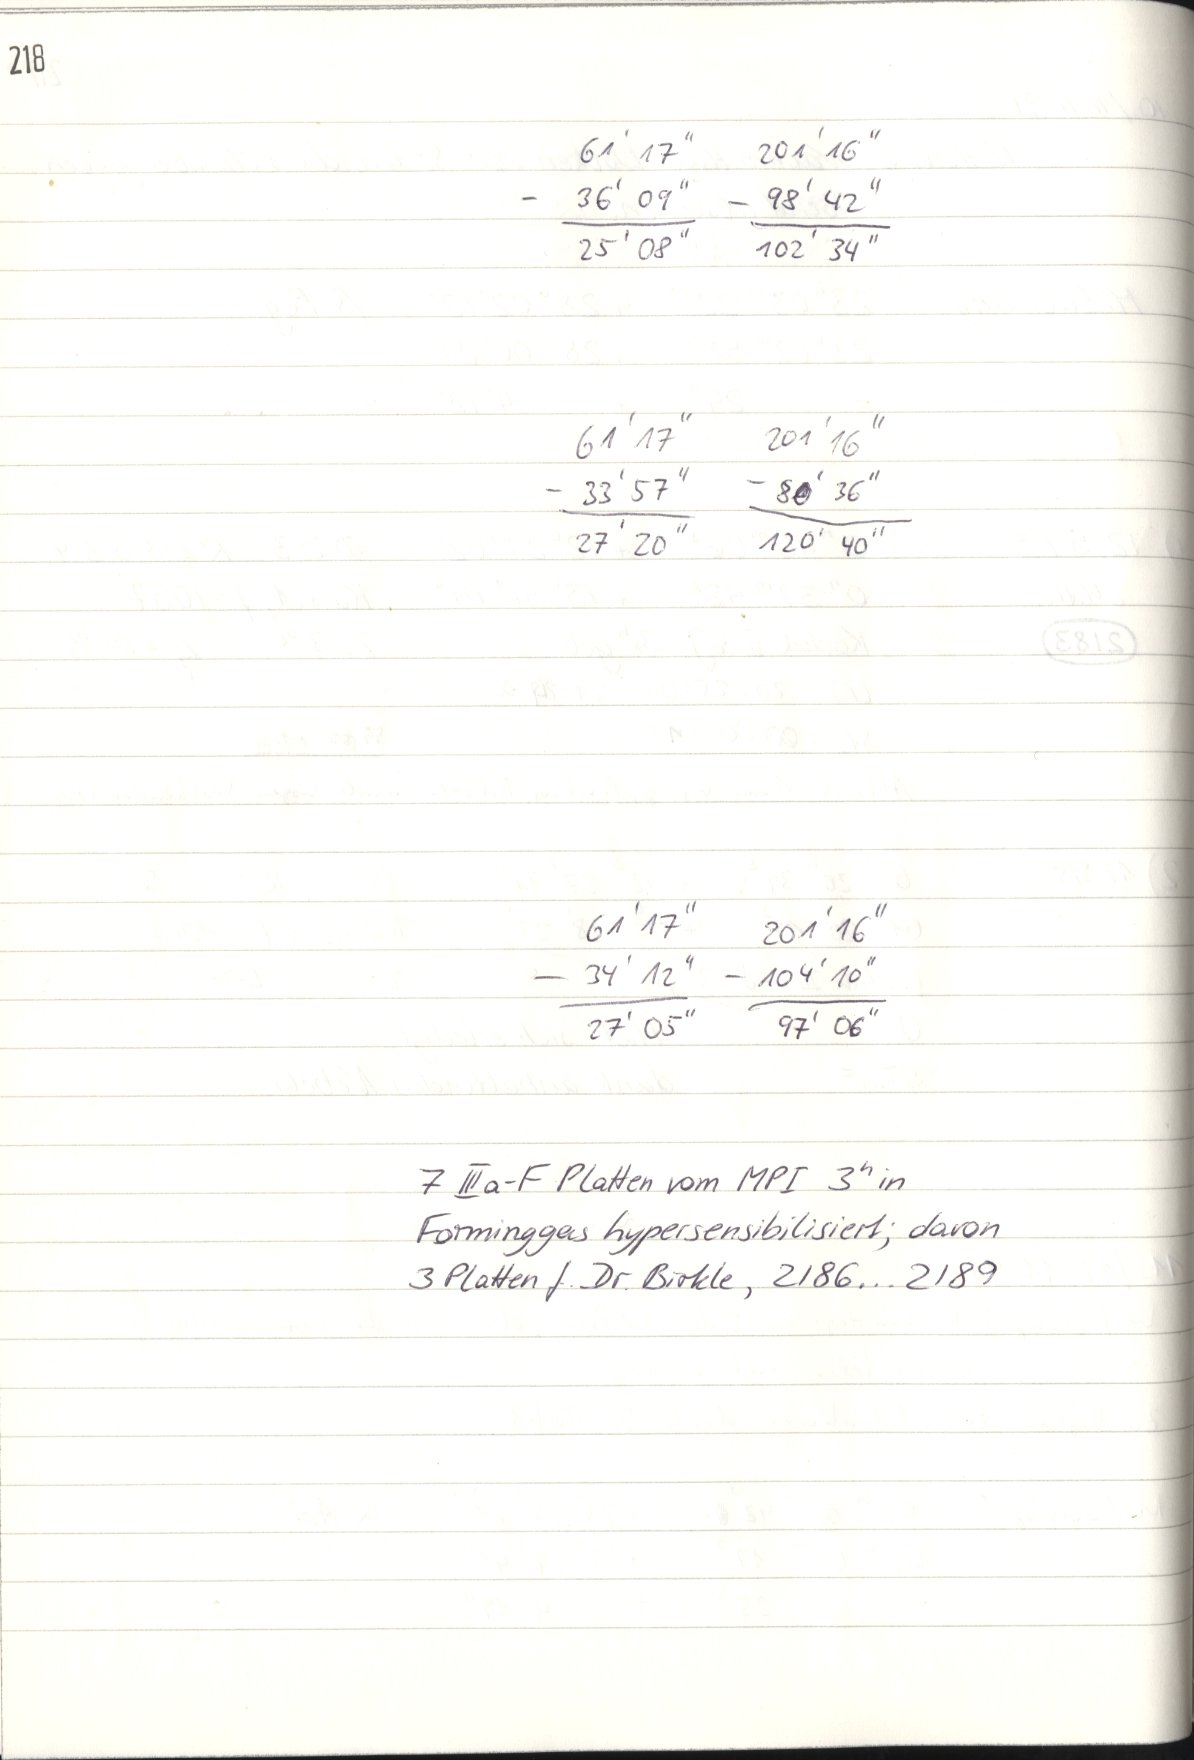 218
61' 17" 201' 16"
- 36' 09" - 98' 42"
25' 08" 102' 34"
61' 17" 201' 16"
- 33' 57" - 80' 36"
27' 20" 120' 40"
61' 17" 201' 16"
- 34' 12" - 104' 10"
27' 05" 97' 06"
7 IIIa-F Platten vom MPI 3h in
Forminggas hypersensibilisiert; davon
3 Platten f. Dr. Birkle, 2186... 2189
2183